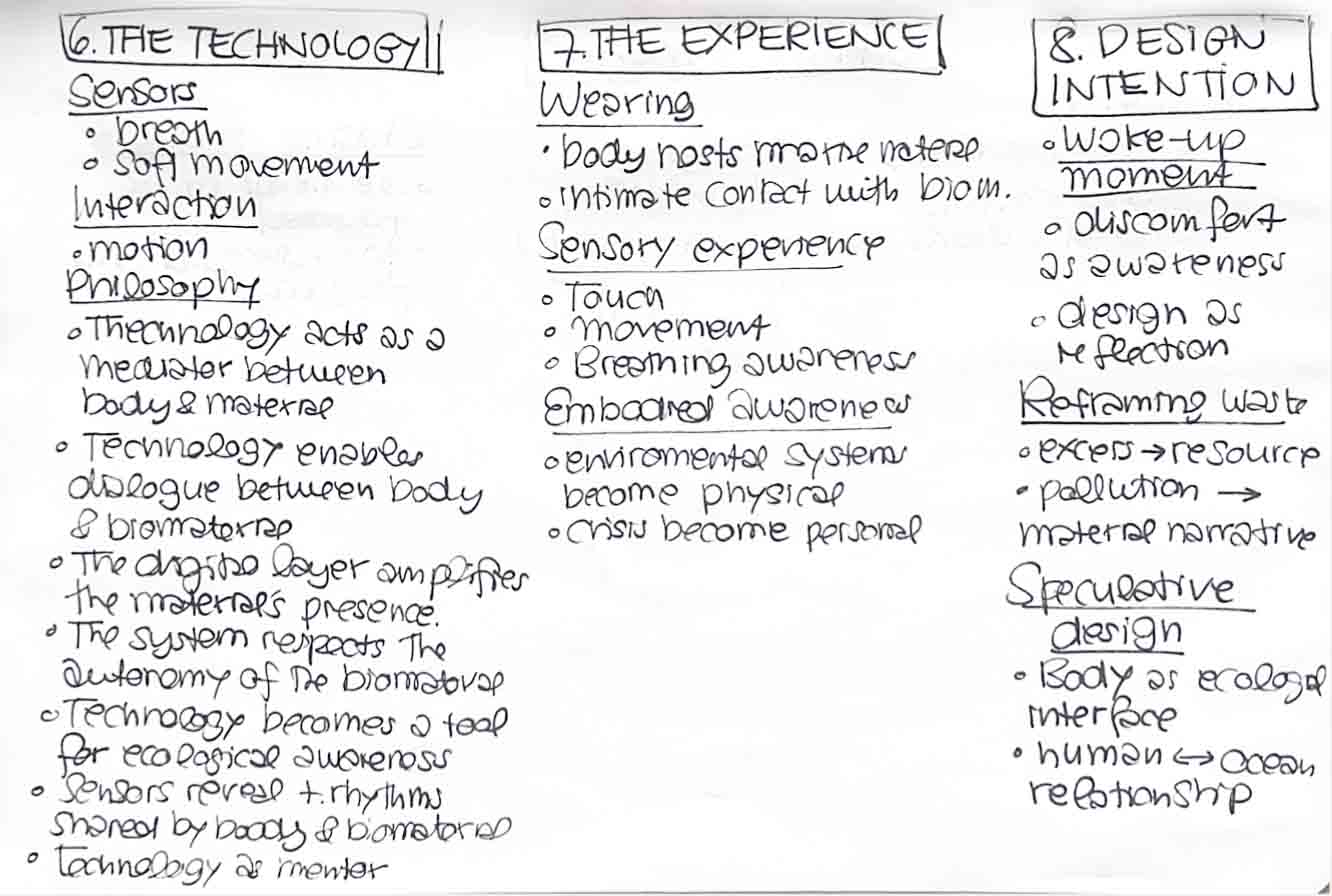 6. THE TECHNOLOGY
Sensors
• breath
• Soft movement
Interaction
• motion
Philosophy
• Thechnology acts as a
mediater between
body & material
• Technology enables
dialogue between body
& biomaterial
• The digital layer amplifies
the material's presence.
• The system respects The
autonomy of The biomaterial
• Technology becomes a tool
for ecological awareness
• Sensors reveal t. rhythms
shared by boody & biomaterial
• technology as mentor
7. THE EXPERIENCE
Wearing
• body hosts marine material
• intimate contact with biom.
Sensory experience
• Touch
• movement
• Breathing awareness
Embodied awareness
• enviromental systems
become physical
• Crisis become personal
8. DESIGN
INTENTION
• Woke-up
moment
• discomfort
as awareness
• design as
reflection
Reframing waste
• excess → resource
• pollution →
material narrative
Speculative
design
• Body as ecological
interface
• human ↔ ocean
relationship